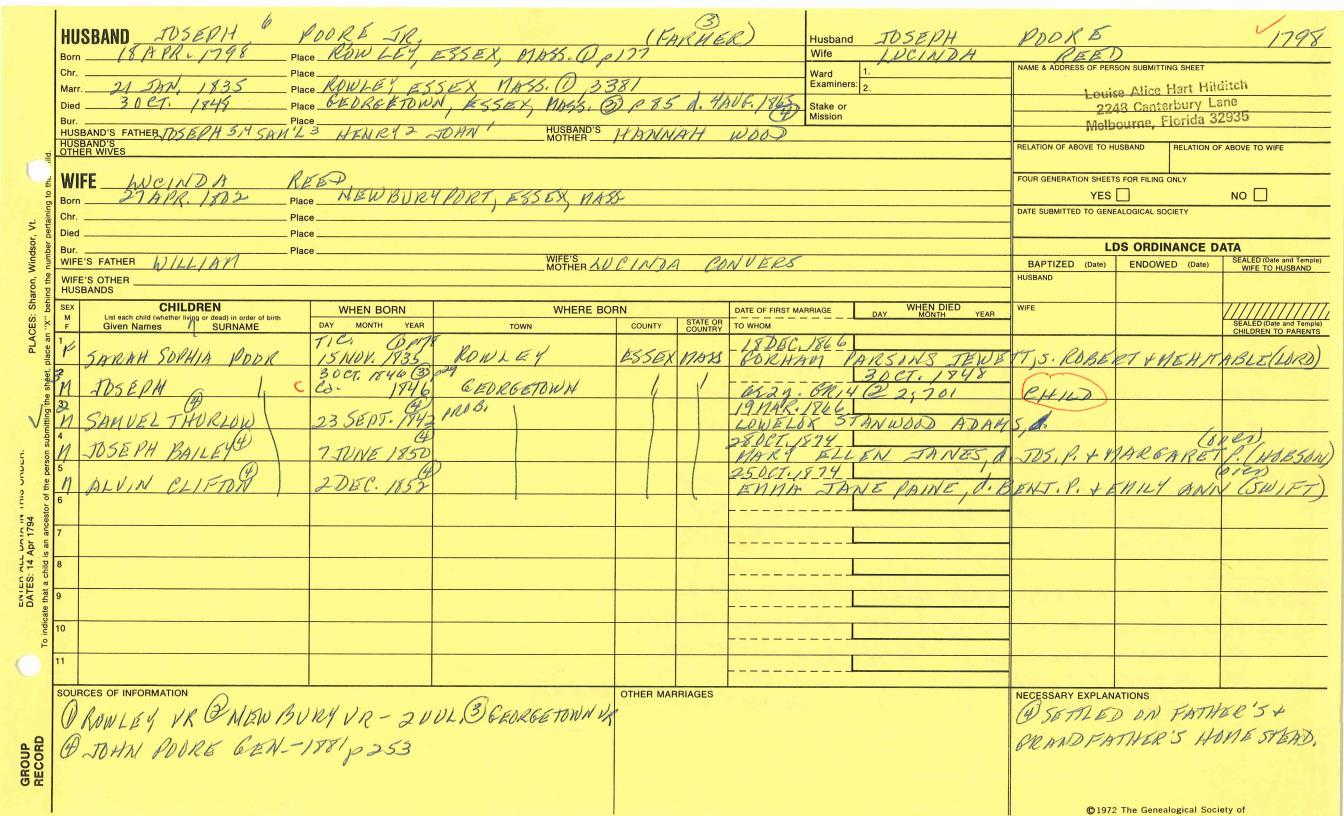 HUSBAND JOSEPH 6 POORE JR. (FARMER) ③
Born 18 APR. 1798 Place ROWLEY, ESSEX, MASS. ① p177
Chr. Place
Marr. 21 JAN. 1835 Place ROWLEY, ESSEX, MASS. ① 3381
Died 3 OCT. 1849 Place GEORGETOWN, ESSEX, MASS. ③ p 85 d. 4 AUG. 1865 ④
Bur. Place
HUSBAND'S FATHER JOSEPH 5,4 SAM'L 3 HENRY 2 JOHN 1 HUSBAND'S MOTHER HANNAH WOOD
HUSBAND'S OTHER WIVES
Husband JOSEPH POORE 1798
Wife LUCINDA REED
Ward Examiners: 1.
2.
Stake or Mission
NAME & ADDRESS OF PERSON SUBMITTING SHEET
Louise Alice Hart Hilditch
2248 Canterbury Lane
Melbourne, Florida 32935
RELATION OF ABOVE TO HUSBAND RELATION OF ABOVE TO WIFE
FOUR GENERATION SHEETS FOR FILING ONLY
YES NO
DATE SUBMITTED TO GENEALOGICAL SOCIETY
WIFE LUCINDA REED
Born 27 APR. 1802 Place NEWBURYPORT, ESSEX, MASS
Chr. Place
Died Place
Bur. Place
WIFE'S FATHER WILLIAM WIFE'S MOTHER LUCINDA CONVERS
WIFE'S OTHER HUSBANDS
LDS ORDINANCE DATA
BAPTIZED (Date) ENDOWED (Date) SEALED (Date and Temple) WIFE TO HUSBAND
HUSBAND
WIFE
SEALED (Date and Temple) CHILDREN TO PARENTS
SEX M F
CHILDREN
List each child (whether living or dead) in order of birth
Given Names SURNAME
WHEN BORN
DAY MONTH YEAR
WHERE BORN
TOWN COUNTY STATE OR COUNTRY
DATE OF FIRST MARRIAGE
TO WHOM
WHEN DIED
DAY MONTH YEAR
1 18 DEC. 1866
F SARAH SOPHIA POOR 15 NOV. 1835 ROWLEY ESSEX MASS GORHAM PARSONS JEWETT, S. ROBERT & MEHITABLE (LORD)
2 3 OCT. 1846 ③ 3 OCT. 1848
M JOSEPH C 1846 GEORGETOWN ② 2,701 CHILD
3 ④ ④ PROB. 19 MAR. 1866
M SAMUEL THURLOW 23 SEPT. 1842 STANWOOD ADAMS, d.
4 28 OCT. 1874
M JOSEPH BAILEY ④ 7 JUNE 1850 ④ MARY ELLEN JANES, d. JOS. P. & MARGARET P. (HOBSON)
5 25 OCT. 1874
M ALVIN CLIFTON ④ 2 DEC. 1852 ④ EMMA JANE PAINE, d. BENJ. P. & EMILY ANN (SWIFT)
6
7
8
9
10
11
SOURCES OF INFORMATION
① ROWLEY VR ② NEWBURY VR - 2 VOL. ③ GEORGETOWN VR
④ JOHN POORE GEN - 1881 p 253
OTHER MARRIAGES
NECESSARY EXPLANATIONS
④ SETTLED ON FATHER'S &
GRANDFATHER'S HOMESTEAD.
©1972 The Genealogical Society of
PLACES: Sharon, Windsor, Vt.
ENTER ALL DATA IN THIS ORDER:
DATES: 14 Apr 1794
To indicate that a child is an ancestor of the person submitting the sheet, place an "X" behind the number pertaining to that child.
GROUP RECORD